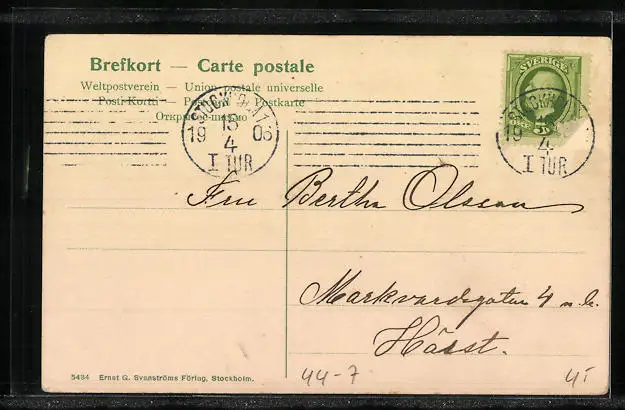 Brefkort — Carte postale
Weltpostverein — Union postale universelle
Posti Kortti — Postkarte
Открытое письмо
STOCKHOLM 1
19 15 06
4
I TUR
SVERIGE
5 ÖRE
STOCKH
19
4
I TUR
Fru Bertha Olsson
Markvardsgatan 4 n.b.
Hässt.
5434 Ernst G. Svanströms Förlag, Stockholm.
44-7
41